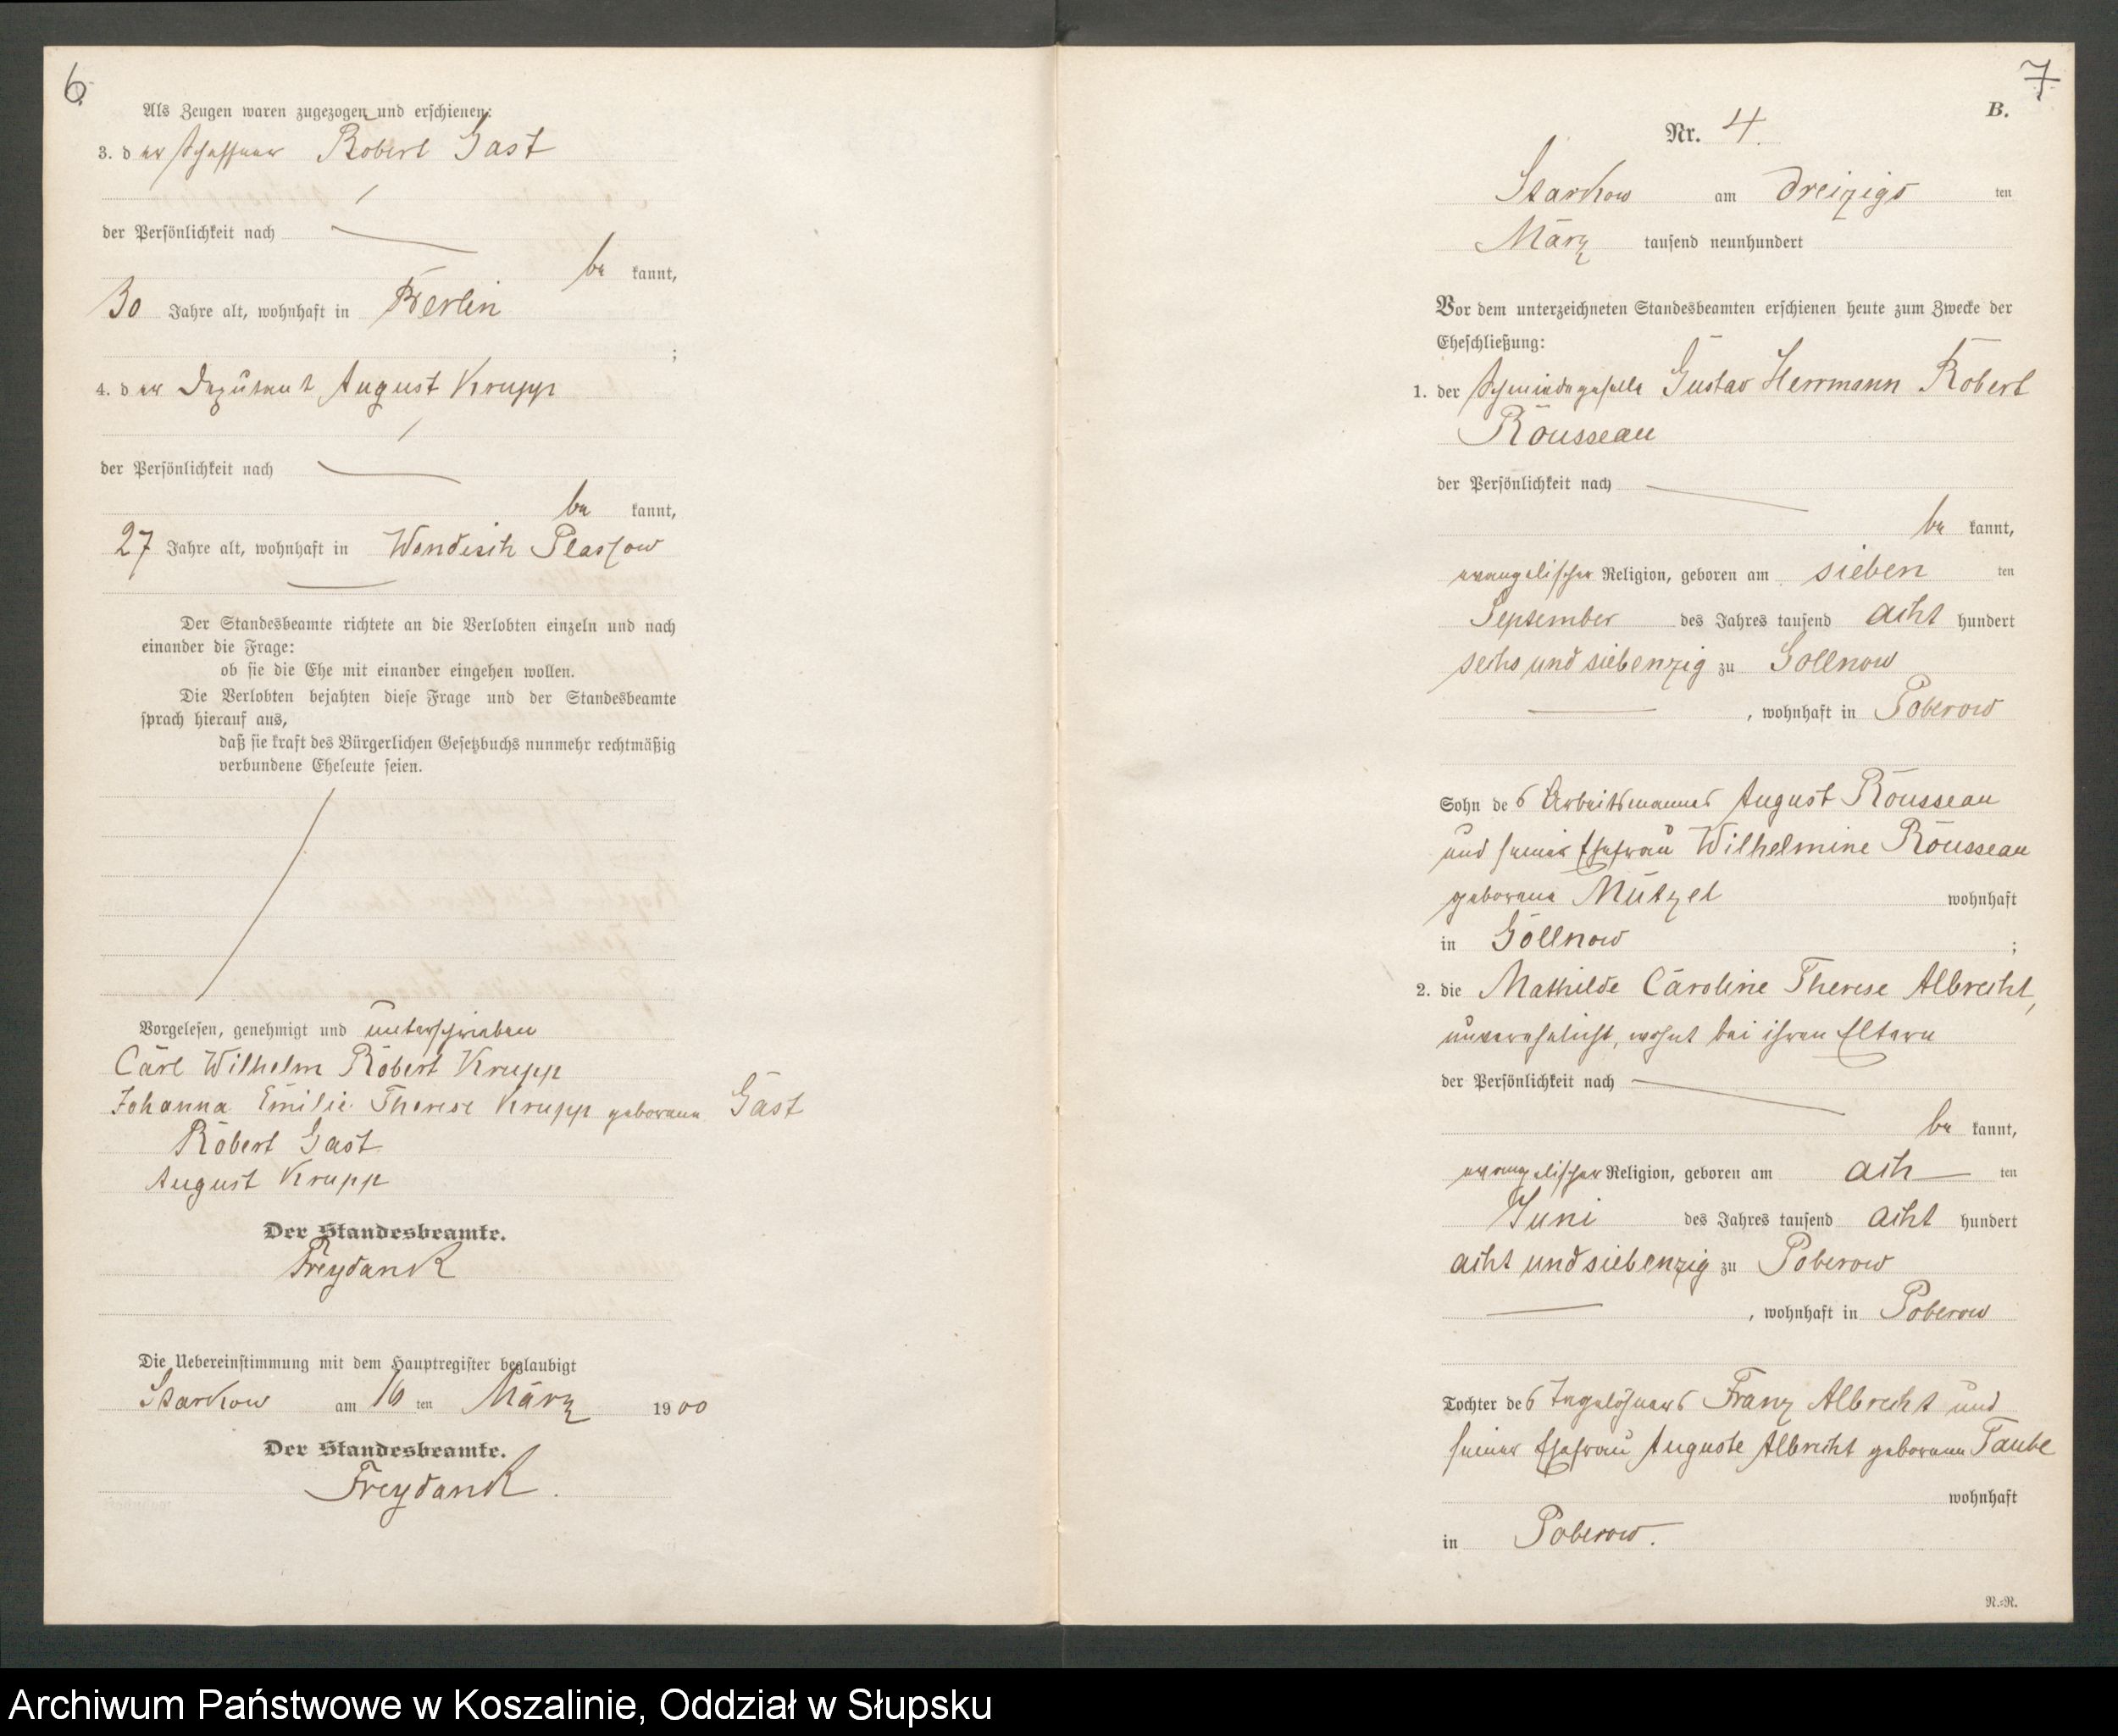 6.
Als Zeugen waren zugezogen und erschienen:
3. der Schaffner Robert Gast
der Persönlichkeit nach
be kannt,
30 Jahre alt, wohnhaft in Berlin
;
4. der Deputant August Krupp
der Persönlichkeit nach
be kannt,
27 Jahre alt, wohnhaft in Wendisch Plassow
Der Standesbeamte richtete an die Verlobten einzeln und nach
einander die Frage:
ob sie die Ehe mit einander eingehen wollen.
Die Verlobten bejahten diese Frage und der Standesbeamte
sprach hierauf aus,
daß sie kraft des Bürgerlichen Gesetzbuchs nunmehr rechtmäßig
verbundene Eheleute seien.
Vorgelesen, genehmigt und unterschrieben
Carl Wilhelm Robert Krupp
Johanna Emilie Therese Krupp geborene Gast
Robert Gast
August Krupp
Der Standesbeamte.
Freydank
Die Uebereinstimmung mit dem Hauptregister beglaubigt
Starkow am 16 ten März 1900
Der Standesbeamte.
Freydank.
7
B.
Nr. 4.
Starkow am dreizigs ten
März tausend neunhundert
Vor dem unterzeichneten Standesbeamten erschienen heute zum Zwecke der
Eheschließung:
1. der Schmiedegeselle Gustav Herrmann Robert
Rousseau
der Persönlichkeit nach
be kannt,
evangelischer Religion, geboren am sieben ten
September des Jahres tausend acht hundert
sechs und siebenzig zu Gollnow
, wohnhaft in Poberow
Sohn des Arbeitsmannes August Rousseau
und seiner Ehefrau Wilhelmine Rousseau
geborene Mützel wohnhaft
in Gollnow ;
2. die Mathilde Caroline Therese Albrecht,
unverehelicht, wohnt bei ihren Eltern
der Persönlichkeit nach
be kannt,
evangelischer Religion, geboren am ach ten
Juni des Jahres tausend acht hundert
acht und siebenzig zu Poberow
, wohnhaft in Poberow
Tochter des Tagelöhners Franz Albrecht und
seiner Ehefrau Auguste Albrecht geborene Taube
wohnhaft
in Poberow.
N.-N.
Archiwum Państwowe w Koszalinie, Oddział w Słupsku